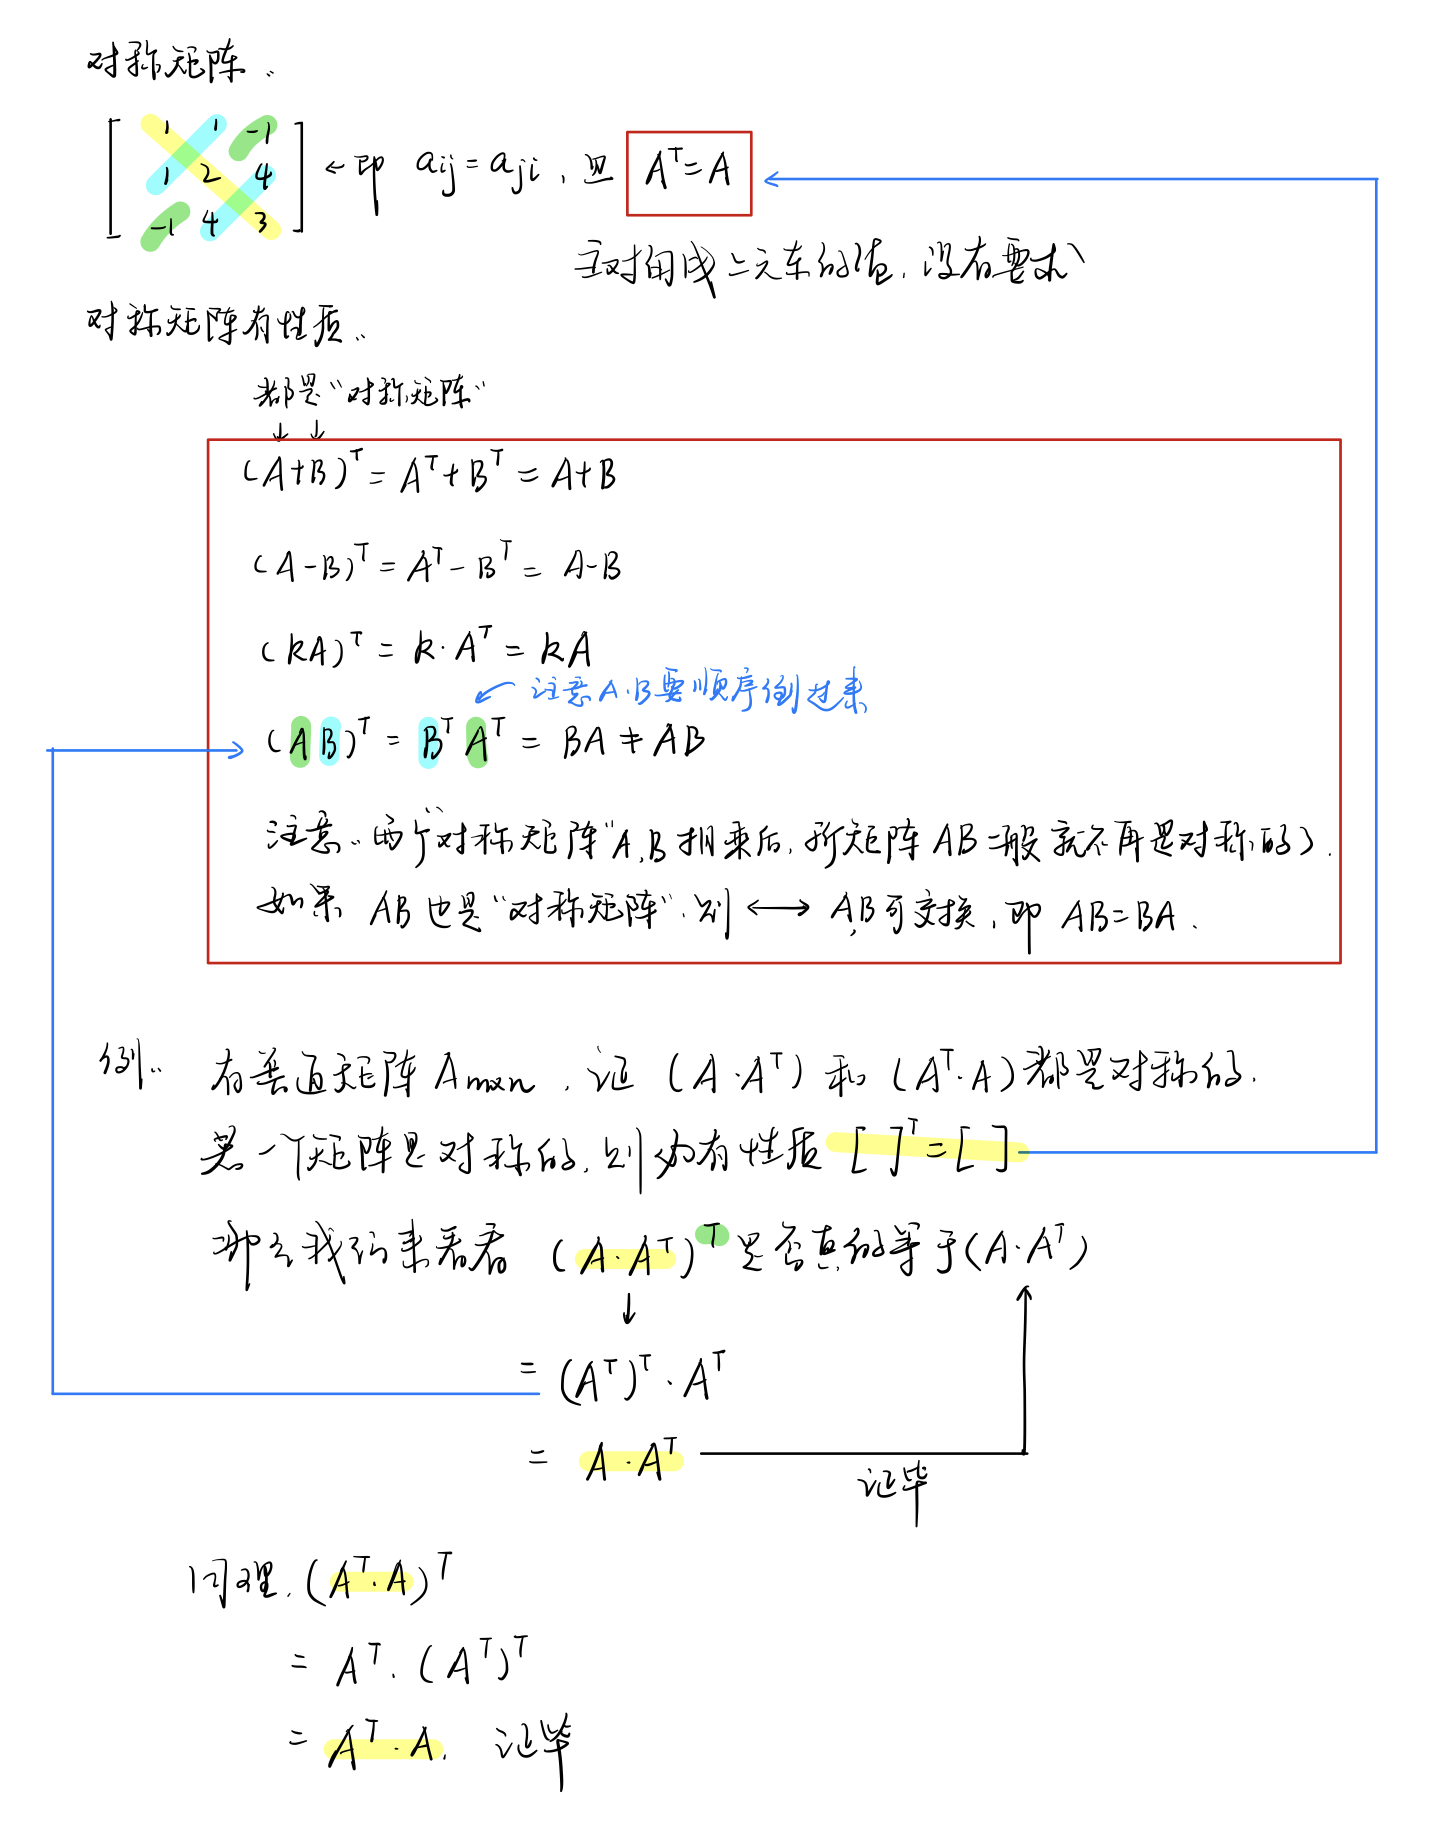 对称矩阵:
[ 1 1 -1
1 2 4
-1 4 3 ] ← 即 aij = aji, 且 Aᵀ = A
主对角线上元素的值, 没有要求
对称矩阵有性质:
都是"对称矩阵"
↓ ↓
(A+B)ᵀ = Aᵀ + Bᵀ = A+B
(A-B)ᵀ = Aᵀ - Bᵀ = A-B
(kA)ᵀ = k·Aᵀ = kA
← 注意A·B要顺序倒过来
(AB)ᵀ = BᵀAᵀ = BA ≠ AB
注意: 两个"对称矩阵"A,B相乘后, 新矩阵 AB 一般就不再是对称的了.
如果 AB 也是"对称矩阵", 则 ⟷ A,B可交换, 即 AB=BA.
例: 有普通矩阵 Am×n, 证 (A·Aᵀ) 和 (Aᵀ·A) 都是对称的.
若一个矩阵是对称的, 则必有性质 [ ]ᵀ = [ ]
那么我们来看看 (A·Aᵀ)ᵀ 是否真的等于 (A·Aᵀ)
↓
= (Aᵀ)ᵀ·Aᵀ
= A·Aᵀ
证毕
同理, (Aᵀ·A)ᵀ
= Aᵀ·(Aᵀ)ᵀ
= Aᵀ·A, 证毕